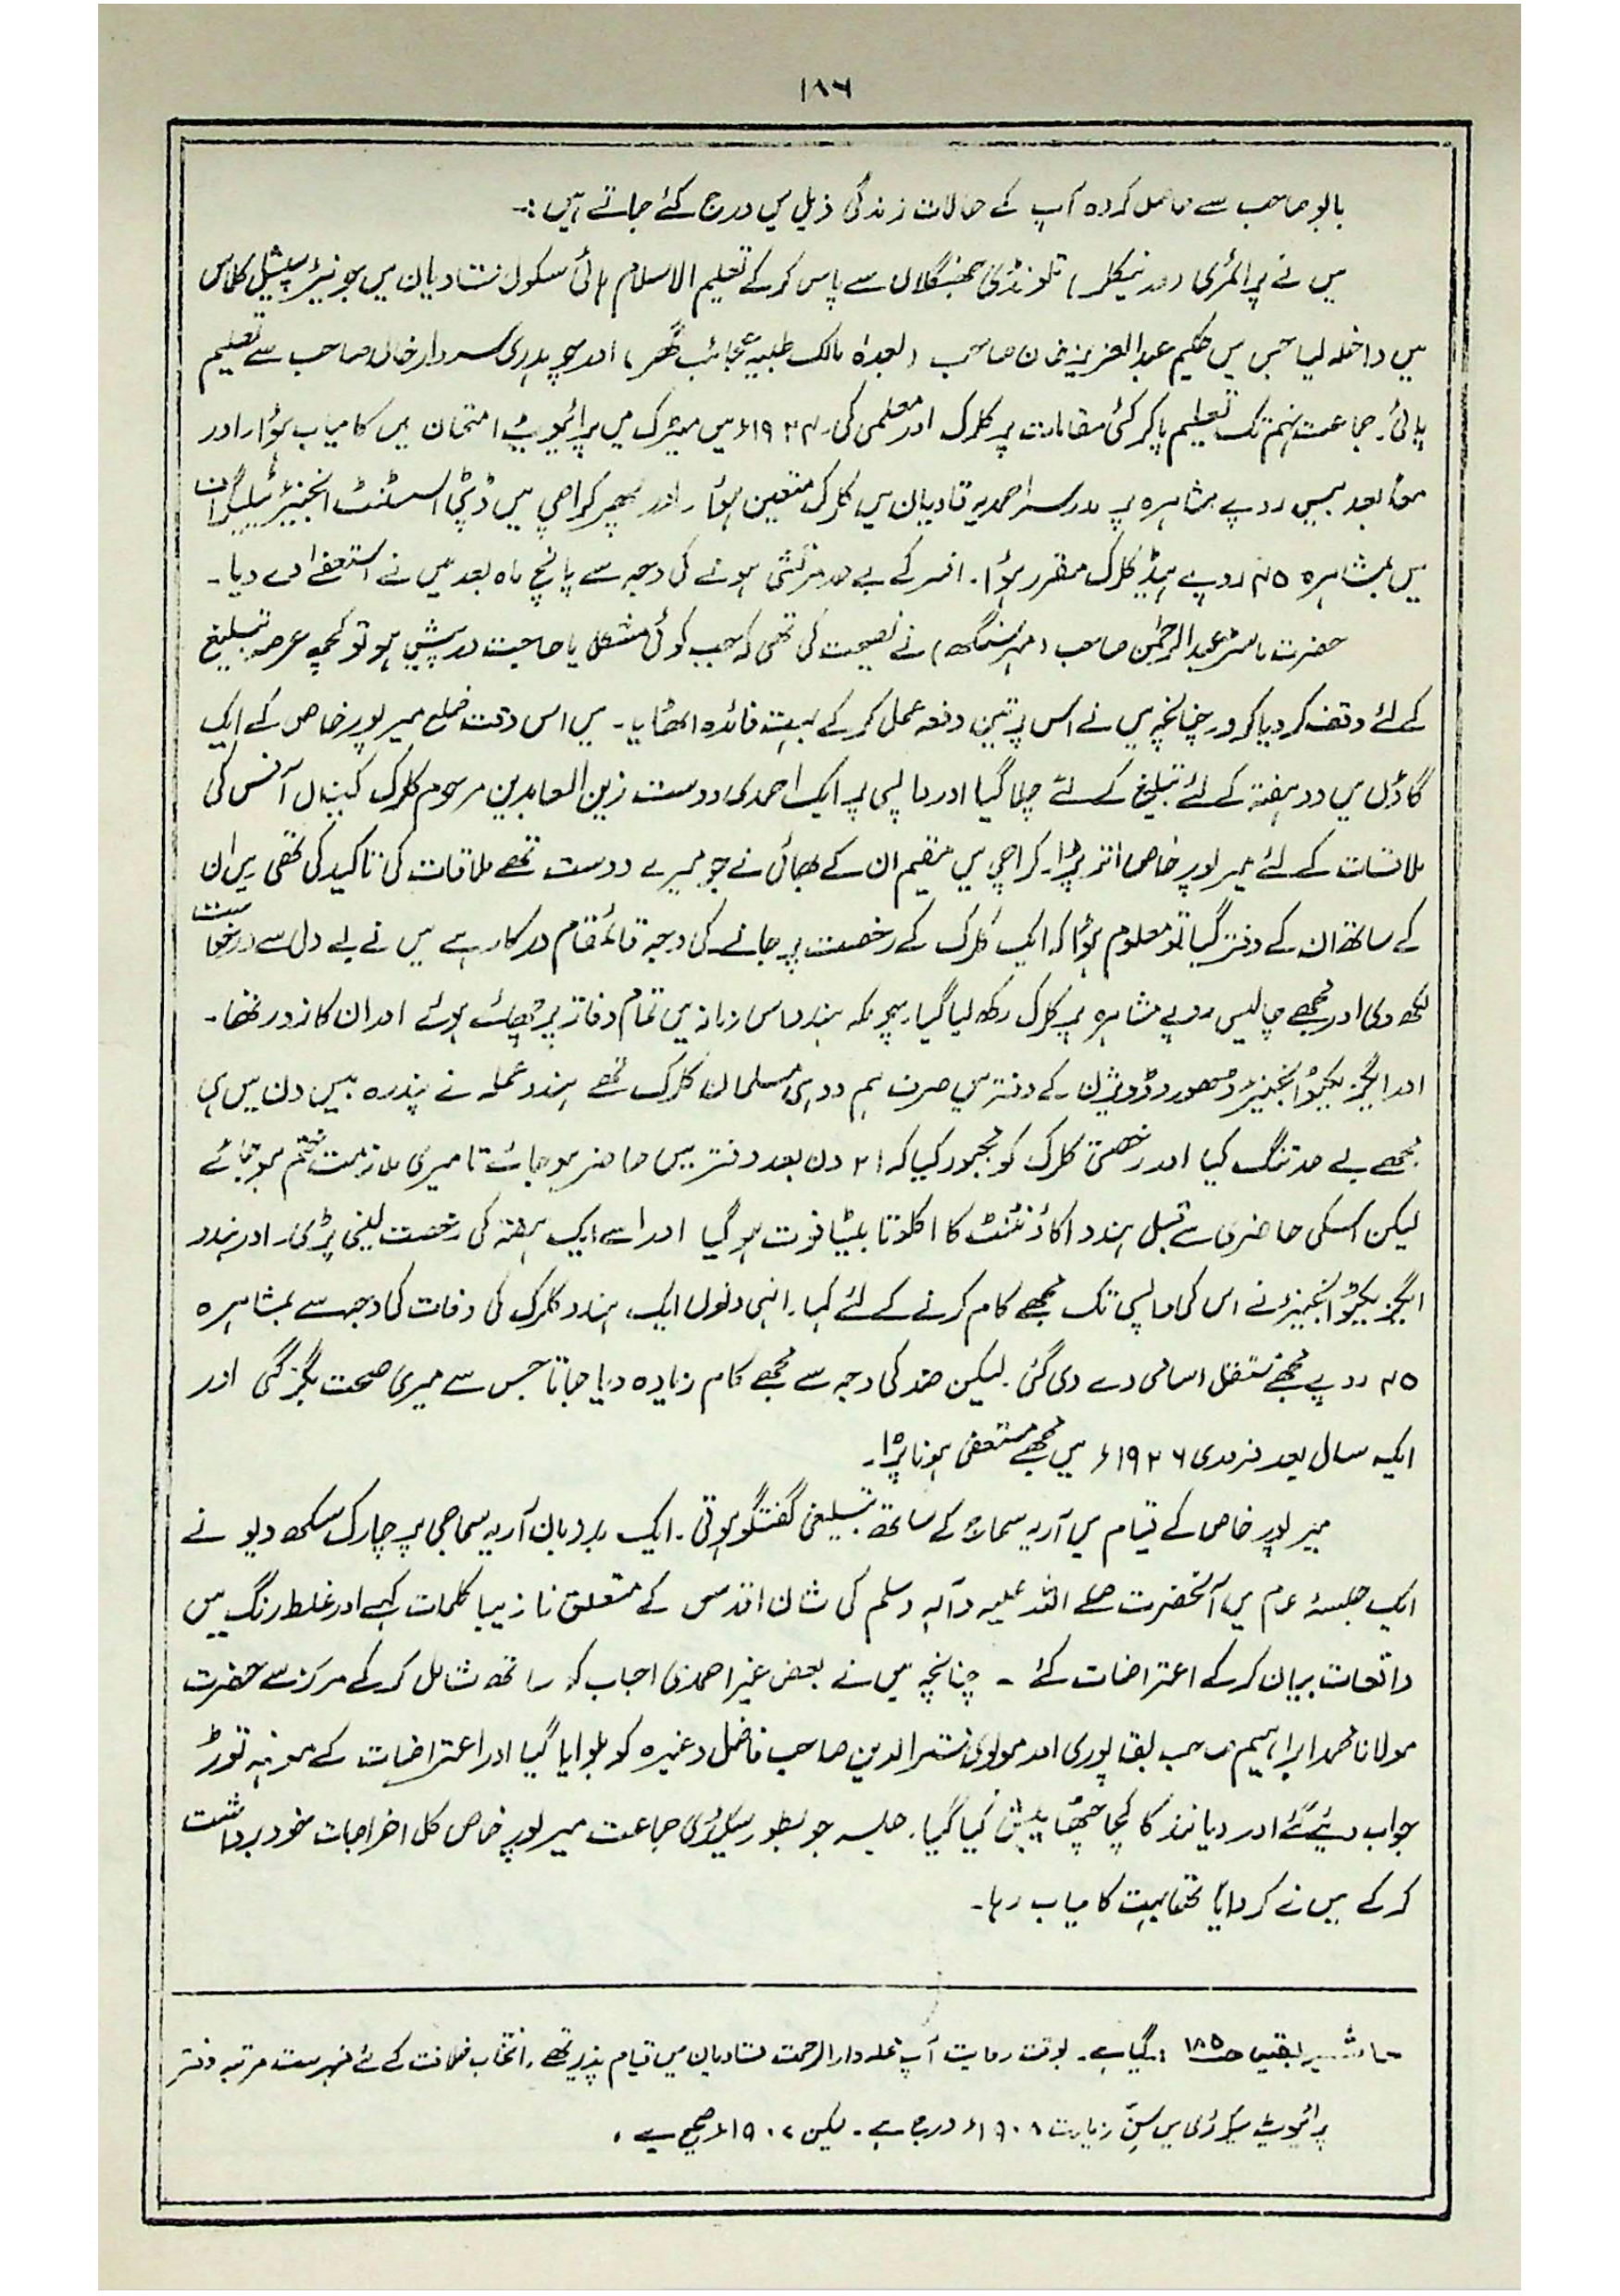 ۱۸۶
بابو صاحب سے حاصل کردہ آپ کے حالات زندگی ذیل میں درج کئے جاتے ہیں :۔
میں نے پرائمری (ورنیکلر) تلونڈی جھنگلاں سے پاس کر کے تعلیم الاسلام ہائی سکول قادیان میں جونیئر سپیشل کلاس
میں داخلہ لیا جس میں حکیم عبدالعزیز خان صاحب (بعدہٗ مالک طبیہ عجائب گھر) اور چوہدری سردار خاں صاحب سے تعلیم
پائی۔ جماعت نہم تک تعلیم پا کر کئی مقامات پر کلرک اور معلمی کی۔ ۱۹۲۴ء میں میٹرک میں پرائیویٹ امتحان میں کامیاب ہؤا۔ اور
معاً بعد بیس روپے مشاہرہ پر مدرسہ احمدیہ قادیان میں کلرک متعین ہؤا۔ اور پھر کراچی میں ڈپٹی اسسٹنٹ انجنیئر ٹیلیگراف
میں بمشاہرہ ۴۵ روپے ہیڈ کلرک مقرر ہؤا۔ افسر کے بے حد مرتشی ہونے کی وجہ سے پانچ ماہ بعد میں نے استعفےٰ دے دیا۔
حضرت ماسٹر عبدالرحمٰن صاحب (مہر سنگھ) نے نصیحت کی تھی کہ جب کوئی مشکل یا حاجت درپیش ہو تو کچھ عرصہ تبلیغ
کے لئے وقف کر دیا کرو۔ چنانچہ میں نے اس پر تین دفعہ عمل کر کے بہت فائدہ اٹھایا۔ میں اس وقت ضلع میرپور خاص کے ایک
گاؤں میں دو ہفتہ کے لئے تبلیغ کے لئے چلا گیا اور واپسی پر ایک احمدی دوست زین العابدین مرحوم کلرک کینال آفس کی
ملاقات کے لئے میرپور خاص اتر پڑا۔ کراچی میں مقیم ان کے بھائی نے جو میرے دوست تھے ملاقات کی تاکید کی تھی میں ان
کے ساتھ ان کے دفتر گیا تو معلوم ہؤا کہ ایک کلرک کے رخصت پر جانے کی وجہ قائمقام درکار ہے میں نے بے دلی سے درخواست
لکھ دی اور مجھے چالیس روپے مشاہرہ پر کلرک رکھ لیا گیا۔ چونکہ ہندو اس زمانہ میں تمام دفاتر پر چھائے ہوئے اور ان کا زور تھا۔
اور ایگزیکٹو انجنیئر مٹھورو ڈویژن کے دفتر میں صرف ہم دو ہی مسلمان کلرک تھے ہندو عملہ نے پندرہ بیس دن میں ہی
مجھے بے حد تنگ کیا اور رخصتی کلرک کو مجبور کیا کہ ۲۱ دن بعد دفتر میں حاضر ہو جائے تا میری ملازمت ختم ہو جائے
لیکن اسکی حاضری سے قبل ہندو اکاؤنٹنٹ کا اکلوتا بیٹا فوت ہو گیا اور اسے ایک ہفتہ کی رخصت لینی پڑی۔ اور ہندو
ایگزیکٹو انجنیئر نے اس کی واپسی تک مجھے کام کرنے کے لئے کہا۔ انہی دنوں ایک ہندو کلرک کی وفات کی وجہ سے بمشاہرہ
۴۵ روپے مجھے مستقل اسامی دے دی گئی۔ لیکن ضد کی وجہ سے مجھے کام زیادہ دیا جاتا جس سے میری صحت بگڑ گئی اور
ایک سال بعد فروری ۱۹۲۶ء میں مجھے مستعفی ہونا پڑا۔
میرپور خاص کے قیام میں آریہ سماج کے ساتھ تبلیغی گفتگو ہوتی۔ ایک بدزبان آریہ سماجی پرچارک سکھ دیو نے
ایک جلسۂ عام میں آنحضرت صلے اللہ علیہ وآلہ وسلم کی شان اقدس کے متعلق نازیبا کلمات کہے اور غلط رنگ میں
واقعات بیان کر کے اعتراضات کئے ۔ چنانچہ میں نے بعض غیر احمدی احباب کو ساتھ شامل کر کے مرکز سے حضرت
مولانا محمد ابراہیم صاحب بقاپوری اور مولوی قمر الدین صاحب فاضل وغیرہ کو بلوایا گیا اور اعتراضات کے مونہہ توڑ
جواب دیئے گئے اور دیانند کا کچا چٹھا پیش کیا گیا۔ جلسہ جو بطور سیکرٹری جماعت میرپور خاص کل اخراجات خود برداشت
کر کے میں نے کروایا تھا بہت کامیاب رہا۔
حاشیہ بقیہ ص۱۸۵ : گیا ہے۔ بوقت روایت آپ محلہ دارالرحمت قادیان میں قیام پذیر تھے۔ انتخاب خلافت کے لئے فہرست مرتبہ دفتر
پرائیویٹ سیکرٹری میں سنِ زیارت ۱۹۰۸ء درج ہے۔ لیکن ۱۹۰۲ء صحیح ہے ۔